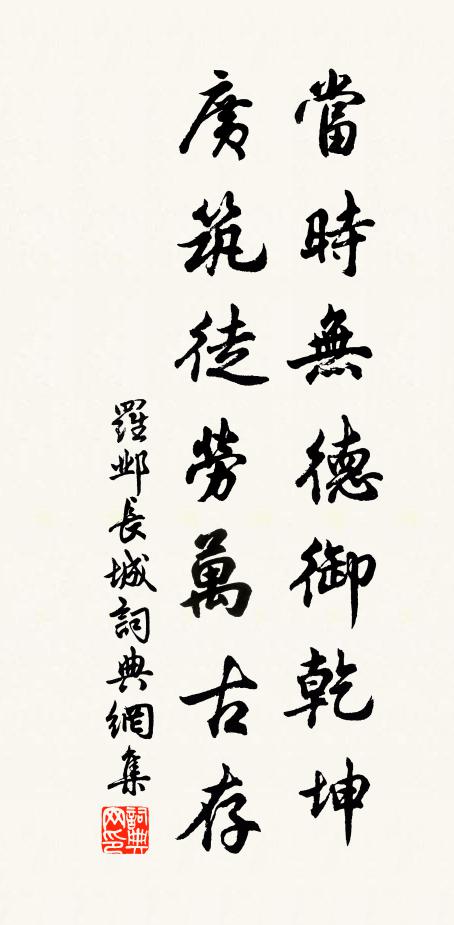 當時無德御乾坤
廣筑徒勞萬古存
羅鄴長城詞典網集
詞典网印